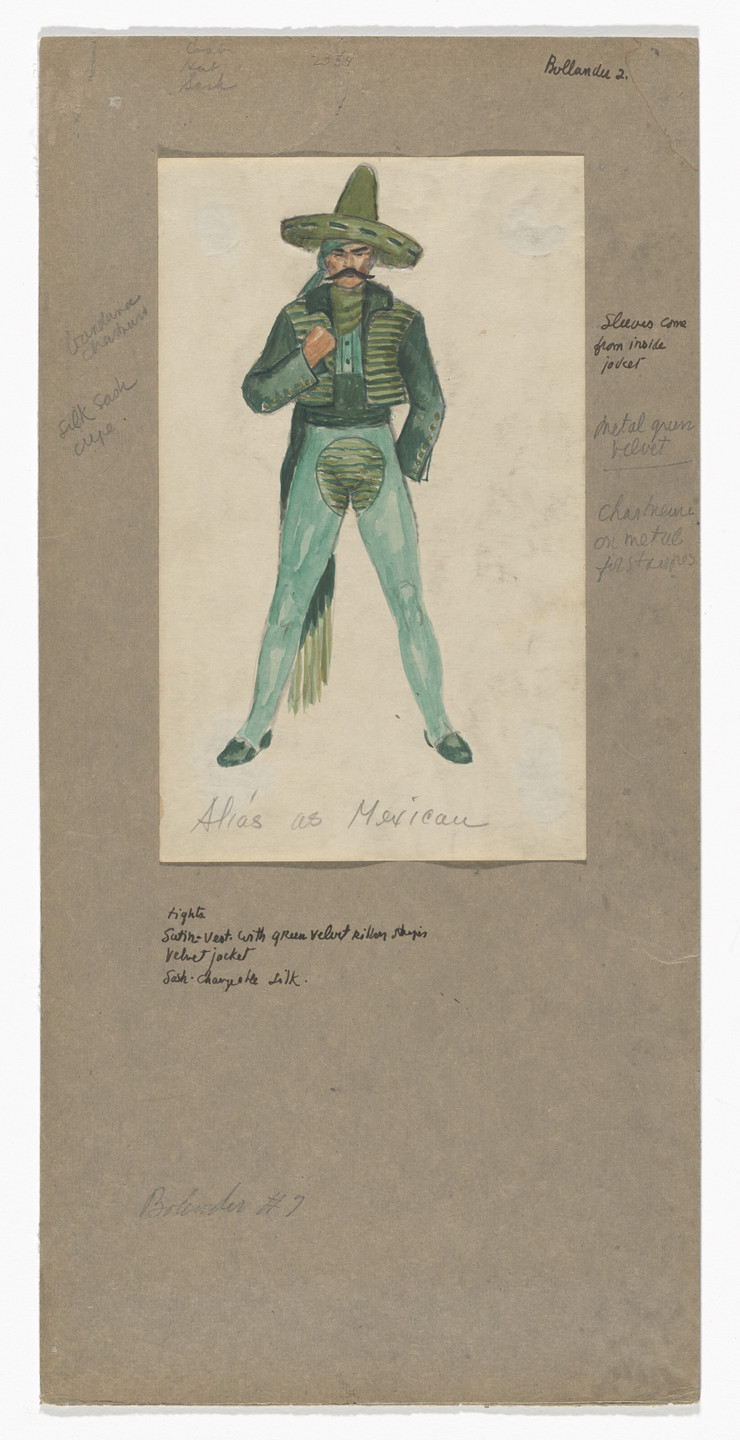 Hat
Sash
Bollander 2.
bandana
chartreuse
silk sash
crepe.
Sleeves come
from inside
jacket
metal green
velvet
Chartreuse
on metal
for stripes
Alias as Mexican
tights
Satin-vest. with green velvet ribbon stripes
Velvet jacket
Sash-changeable silk.
Bolender #7